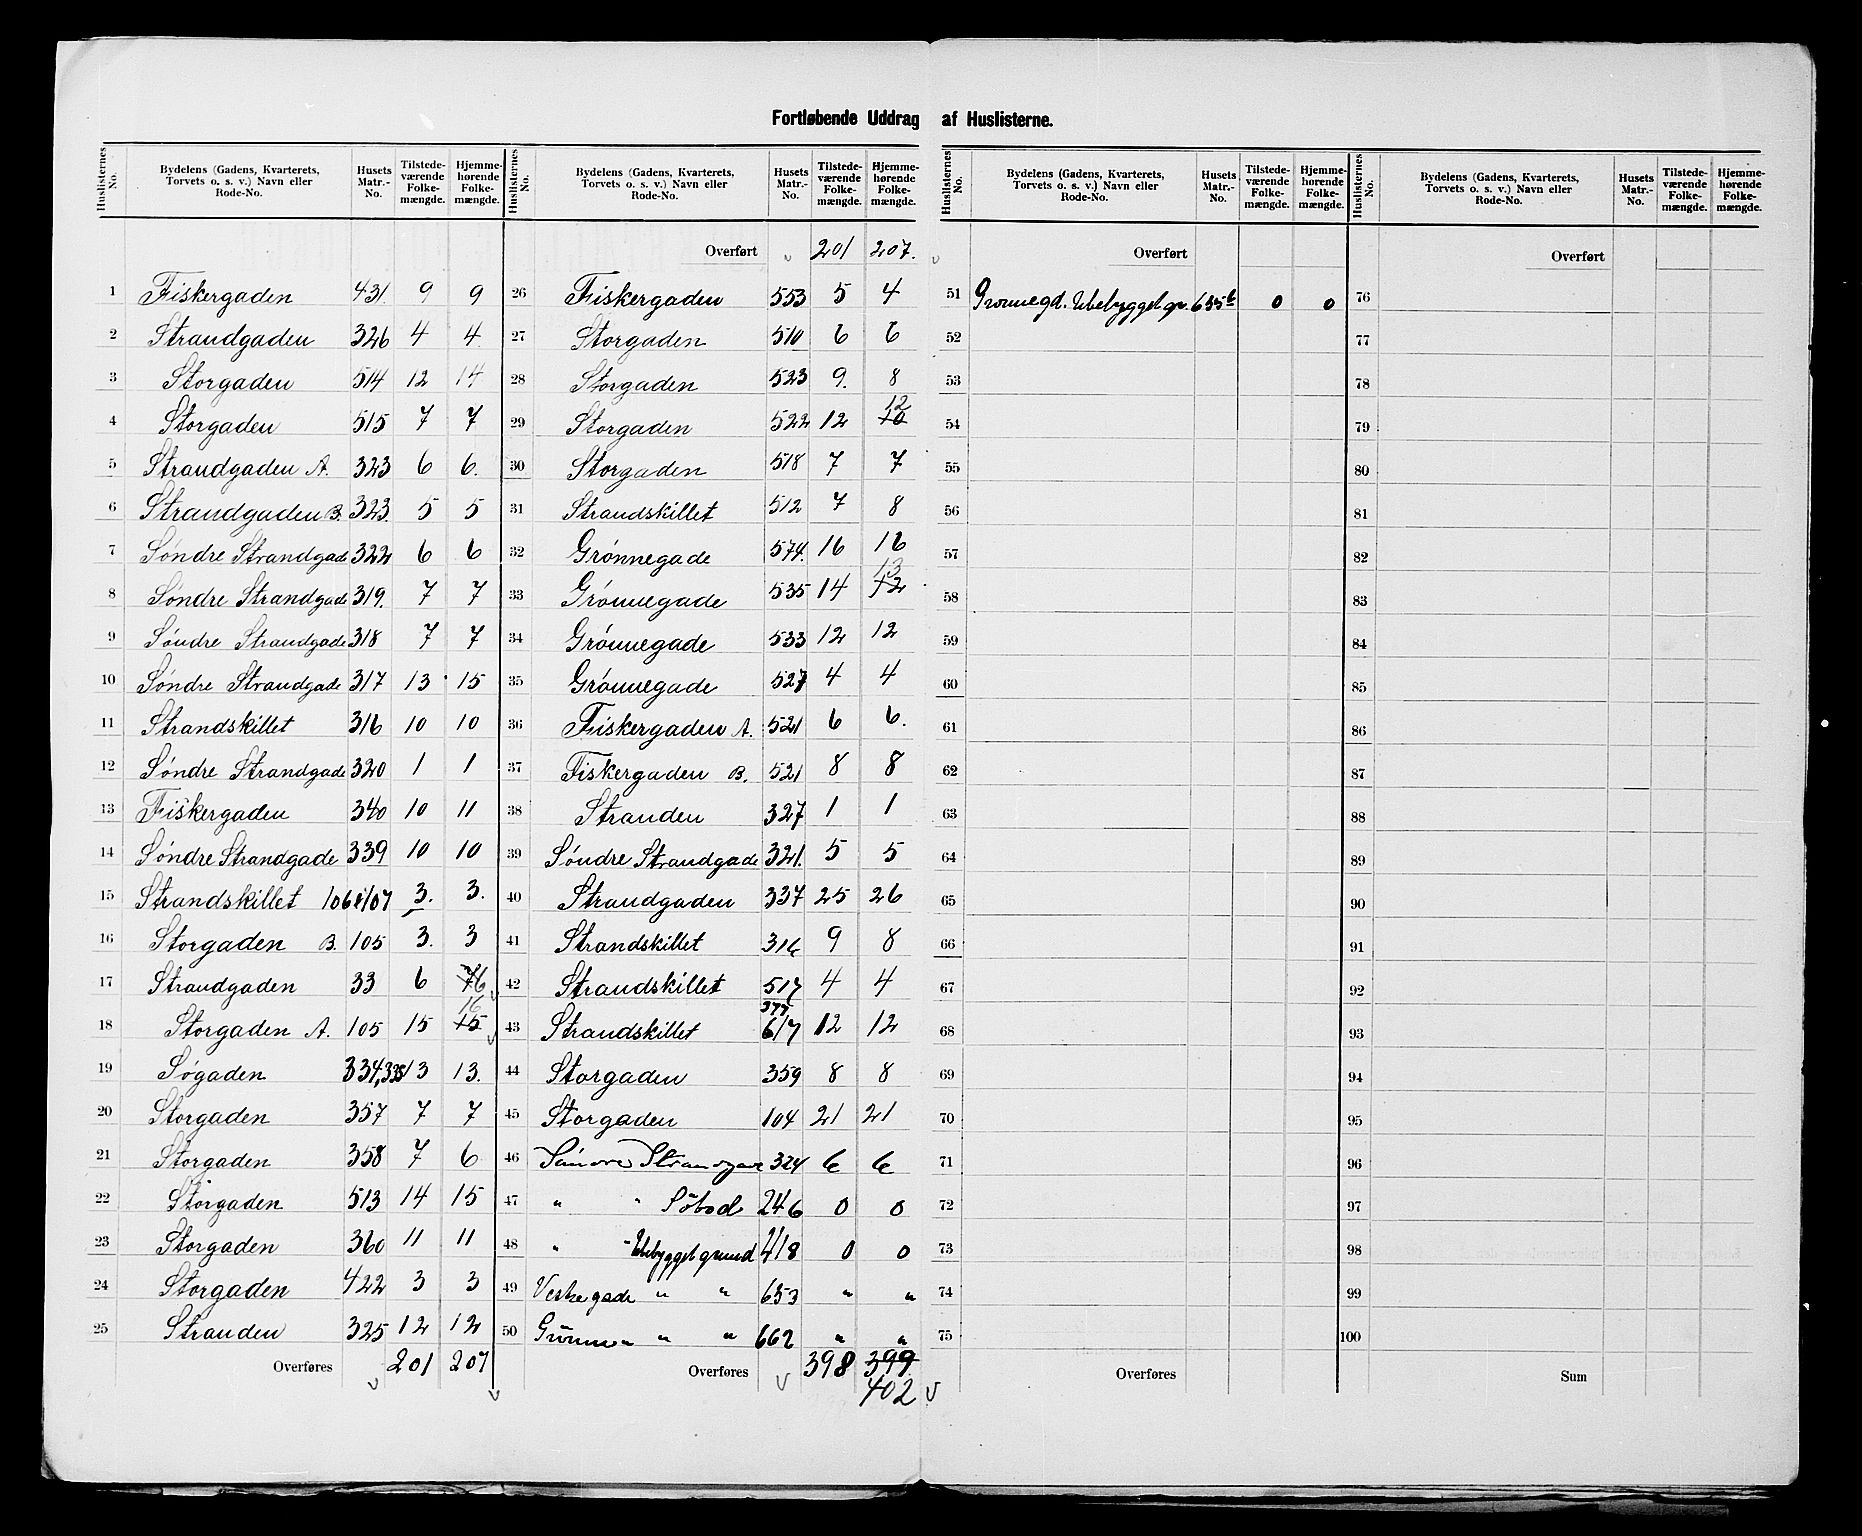 Fortløbende Uddrag af Huslisterne.
Huslisternes No. Bydelens (Gadens, Kvarterets, Torvets o. s. v.) Navn eller Rode-No. Husets Matr.-No. Tilstedeværende Folkemængde. Hjemmehørende Folkemængde.
1 Fiskergaden 431. 9 9
2 Strandgaden 326 4 4
3 Storgaden 514 12 14
4 Storgaden 515 7 7
5 Strandgaden A. 323 6 6.
6 Strandgaden B. 323. 5 5
7 Søndre Strandgade 322 6 6
8 Søndre Strandgade 319. 7 7
9 Søndre Strandgade 318 7 7
10 Søndre Strandgade 317 13 15
11 Strandskillet 316 10 10
12 Søndre Strandgade 320 1 1
13 Fiskergaden 340 10 11
14 Søndre Strandgade 339 10 10
15 Strandskillet 106 & 107 3. 3.
16 Storgaden B. 105 3. 3
17 Strandgaden 33 6 7 6
18 Storgaden A. 105 15 15 16
19 Søgaden 334,335 13 13.
20 Storgaden 357 7 7
21 Storgaden 358 7 6
22 Storgaden 513 14 15
23 Storgaden 360 11 11
24 Storgaden 422 3 3
25 Stranden 325 12 12
Overføres 201 207
Huslisternes No. Bydelens (Gadens, Kvarterets, Torvets o. s. v.) Navn eller Rode-No. Husets Matr.-No. Tilstedeværende Folkemængde. Hjemmehørende Folkemængde.
Overført 201 207.
26 Fiskergaden 553 5 4
27 Storgaden 510 6 6
28 Storgaden 523 9. 8
29 Storgaden 522 12 10 12
30 Storgaden 518 7 7
31 Strandskillet 512 7 8
32 Grønnegade 574. 16 16
33 Grønnegade 535 14 12 13
34 Grønnegade 533 12 12
35 Grønnegade 527 4 4
36 Fiskergaden A. 521 6 6.
37 Fiskergaden B. 521 8 8
38 Stranden 327 1 1
39 Søndre Strandgade 321. 5 5
40 Strandgaden 337 25 26
41 Strandskillet 316 9 8
42 Strandskillet 517 4 4
43 Strandskillet 377 617 12 12
44 Storgaden 359 8 8
45 Storgaden 104 21 21
46 Søndre Strandgade 324 6 6
47 " " Söbod 246 0 0
48 " " Ubebygget grund 418 0 0
49 gade " " 653 " "
50 Grönne " " " 662 " "
Overføres 398 399
402
Huslisternes No. Bydelens (Gadens, Kvarterets, Torvets o. s. v.) Navn eller Rode-No. Husets Matr.-No. Tilstedeværende Folkemængde. Hjemmehørende Folkemængde.
Overført
51 Grønnegd. Ubebygget gr. 635b 0 0
52
53
54
55
56
57
58
59
60
61
62
63
64
65
66
67
68
69
70
71
72
73
74
75
Overføres
Huslisternes No. Bydelens (Gadens, Kvarterets, Torvets o. s. v.) Navn eller Rode-No. Husets Matr.-No. Tilstedeværende Folkemængde. Hjemmehørende Folkemængde.
Overført
76
77
78
79
80
81
82
83
84
85
86
87
88
89
90
91
92
93
94
95
96
97
98
99
100
Sum